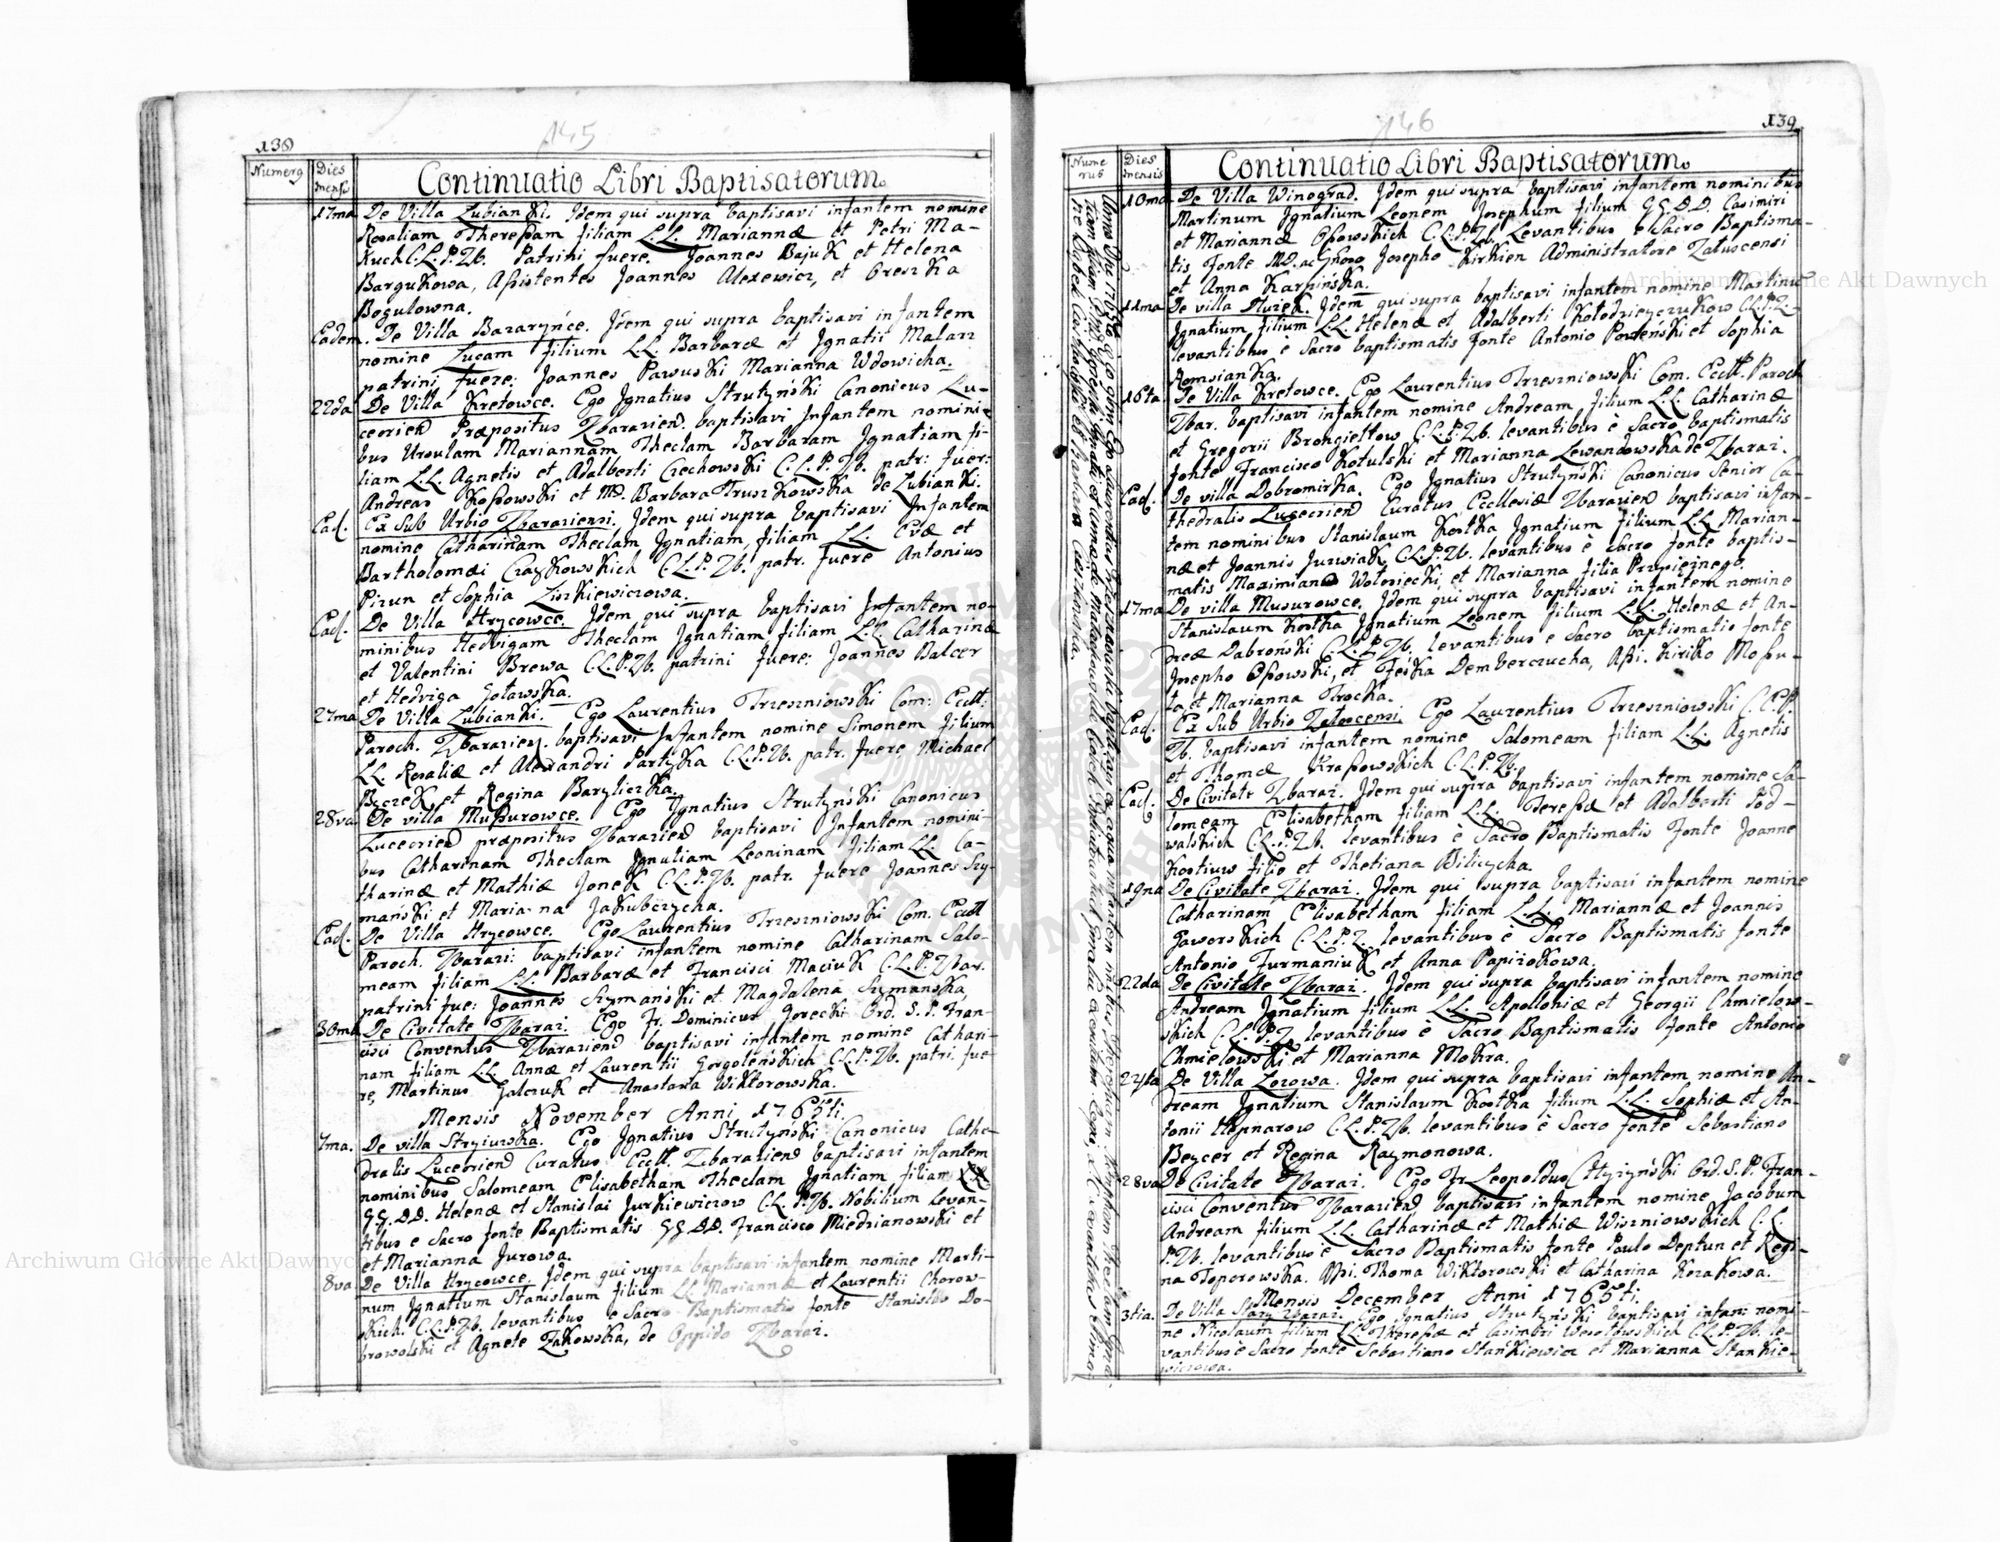 138
145
Numerg
Dies mensis
Continuatio Libri Baptisatorum.
17ma De Villa Lubianki. Idem qui supra baptisavi infantem nomine
Rosaliam Theressam filiam LL. Mariannæ et Petri Ma-
kuch C.L.P.Zb. Patrini fuere. Joannes Bajuk et Helena
Bargukowa, Assistentes Joannes Alexewicz, et Oreszka
Bogulowna.
Eadem. De Villa Bazaryńce. Idem qui supra baptisavi infantem
nomine Lucam filium LL. Barbaræ et Ignatii Malarz
patrini fuere: Joannes Pawuski Marianna Wdowicha.
22da De Villa Kretowce. Ego Ignatius Strutyński Canonicus Lu-
ceorien Præpositus Zbarazien. baptisavi Infantem nomini-
bus Ursulam Mariannam Theclam Barbaram Ignatiam fi-
liam L.L. Agnetis et Adalberti Czechowski C.L.P.Zb. patr: fuer:
Andreas Kossowski et MD. Barbara Truszkowska de Lubianki.
Ead. Ex Sub Urbio Zbaraziensi. Idem qui supra baptisavi Infantem
nomine Catharinam Theclam Ignatiam, filiam LL. Evæ et
Bartholomæi Czaykowskich C.L.P.Zb. patr. fuere Antonius
Pizun et Sophia Ziszkiewiczowa.
Ead. De Villa Hrycowce. Idem qui supra baptisavi Infantem no-
minibus Hedvigam Theclam Ignatiam filiam L.L. Catharinæ
et Valentini Brewa C.L.P.Zb. patrini fuere: Joannes Balcer
et Hedviga Gotawska.
27ma De Villa Lubianki. Ego Laurentius Trzeszniowski Com: Eccll:
Paroch. Zbarazien. baptisavi Infantem nomine Simonem filium
LL. Rosaliæ et Alexandri Partyka C.L.P.Zb. patr. fuere, Michael
Byczek, et Regina Baryliczka.
28va De villa Mussurowce. Ego Ignatius Strutyński Canonicus
Luceorien præpositus Zbarazien baptisavi Infantem nomini-
bus Catharinam Theclam Ignatiam Leoninam filiam LL. Ca-
tharinæ et Mathiæ Jonek C.L.P.Zb. patr. fuere Joannes Szy-
mański et Marianna Jakubczycha.
Ead. De Villa Hrycowce. Ego Laurentius Trzeszniowski Com. Eccll
Paroch. Zbarazi: baptisavi infantem nomine Catharinam Salo-
meam filiam LL. Barbaræ et Francisci Maciuk C.L.P.Zbar.
patrini fue: Joannes Szymański et Magdalena Szymanska
30ma De Civitate Zbaraz. Ego Fr. Dominicus Gorecki Ord. S. P. Fran-
cisci Conventus Zbarazien baptisavi infantem nomine Cathari-
nam filiam LL. Annæ et Laurentii Gorgoleńskich C.L.P.Zb. patri. fue-
re, Martinus Galczuk et Anastasia Wiktorowska.
Mensis November Anni 1765ti.
7ma. De villa Stryiuwka. Ego Ignatius Strutyński Canonicus Cathe-
dralis Luceorien Curatus Eccll. Zbarazien baptisavi infantem
nominibus Salomeam Elisabetham Theclam Ignatiam filiam
GG. DD. Helenæ et Stanislai Jurkiewiczow C.L.P.Zb. Nobilium Levan-
tibus e Sacro fonte Baptismatis GG DD. Francisco Miedzianowski et
et Marianna Jurowa.
8va De Villa Hrycowce. Idem qui supra baptisavi infantem nomine Marti-
num Ignatium Stanislaum filium LL Mariannæ et Laurentii Chorow-
skich. C.L.P.Zb. levantibus e Sacro Baptismatis fonte Stanislao Do-
browolski et Agnete Zakowska, de Oppido Zbaraz.
139
146
Numerus
Dies mensis
Continuatio Libri Baptisatorum.
10ma De Villa Winograd. Idem qui supra baptisavi infantem nominibus
Martinum Ignatium Leonem Josephum filium GG.DD. Casimiri
et Mariannæ Ossowskich C.L.P.Zb. Levantibus e Sacro Baptisma-
tis Fonte MD. ac Gnoso Josepho Kirkien Administratore Zaluscensi
et Anna Karpińska.
11ma De villa Iwiek. Idem qui supra baptisavi infantem nomine Martinum
Ignatium filium L.L. Helenæ et Adalberti Kolodzieyczukow C.L.P.Z.
levantibus è Sacro baptismatis fonte Antonio Poreński et Sophia
Romsianka.
16ta De Villa Kretowce. Ego Laurentius Trzeszniowski Com. Eccll. Paroch
Zbar. baptisavi infantem nomine Andream filium L.L. Catharinæ
et Gregorii Brongieltow C.L.P.Zb. levantibus è Sacro baptismatis
fonte Francisco Kotulski et Marianna Lewandowska de Zbaraz.
Ead. De villa Dobromirka. Ego Ignatius Strutyński Canonicus Senior Ca-
thedralis Luceorien Curatus Ecclesiæ Zbarazien baptisavi infan-
tem nominibus Stanislaum Kostka Ignatium filium L.L. Marian-
næ et Joannis Jurwiak C.L.P.Zb. levantibus è Sacro fonte baptis-
matis Maximiano Wolosiecki et Marianna filia Przpiorznego.
17ma De villa Musurowce. Idem qui supra baptisavi infantem nomine
Stanislaum Kostka Ignatium Leonem filium L.L. Helenæ et An-
dreæ Dabroński C.L.P.Zb. levantibus è Sacro baptismatis fonte
Josepho Ossowski, et Feśka Demberczucha, Assi. Kiriko Mossu-
ta, et Marianna Trocka.
Ead. Ex Sub Urbio Zaloscensi. Ego Laurentius Trzeszniowski C.E.P.
Zb. baptisavi infantem nomine Salomeam filiam L.L. Agnetis
et Thomæ Krassowskich C.L.P.Zb.
Ead. De Civitate Zbaraz. Idem qui supra baptisavi infantem nomine Sa-
lomeam Elisabetham filiam L.L. Teressæ et Adalberti Pod-
walskich C.L.P.Zb. levantibus è Sacro Baptismatis fonte Joanne
Kostiuw filio et Thetiana Bilicycha.
19na De Civitate Zbaraz. Idem qui supra baptisavi infantem nomine
Catharinam Elisabetham filiam L.L. Mariannæ et Joannis
Jaworskich C.L.P.Z. levantibus è Sacro Baptismatis fonte
Antonio Furmaniuk et Anna Papizokowa.
22da De Civitate Zbaraz. Idem qui supra baptisavi infantem nomine
Andream Ignatium filium L.L. Apolloniæ et Georgii Chmielow-
skich C.L.P.Z. levantibus è Sacro Baptismatis fonte Antonio
Chmielowski et Marianna Mokra.
De Villa Lozowa. Idem qui supra baptisavi infantem nomine An-
dream Ignatium Stanislaum Kostka filium L.L. Sophiæ et An-
tonii Hepnarow C.L.P.Zb. levantibus è Sacro fonte Sebastiano
Beycer et Regina Raymonowa.
28va De Civitate Zbaraz. Ego Fr Leopoldus Ord. S. P. Fran-
cisci Conventus Zbarazien baptisavi infantem nomine Jacobum
Andream filium L.L Catharinæ et Mathiæ Wiszniowskich C.L.
P.Zb. levantibus è Sacro Baptismatis fonte Paulo Deptun et Regi-
na Toporowska. Assi. Thoma Wiktorowski et Catharina Kozakowa.
Mensis December Anni 1765ti.
3tia. De Villa Stary Zbaraz. Ego Ignatius Strutyński baptisavi infan: nomi-
ne Nicolaum filium LL. Theressæ et Casimiri Wesolowskich C.L.P.Zb. le-
vantibus è Sacro fonte Sebastiano Stańkiewicz et Marianna Stankie-
wiczowa.
Archiwum Główne Akt Dawnych
Archiwum Główne Akt Dawnych